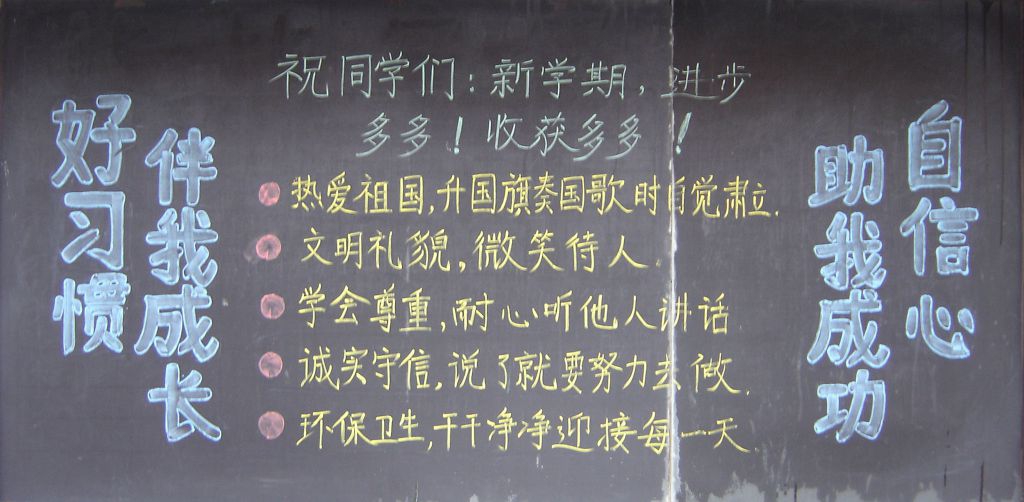 好习惯
伴我成长
祝同学们:新学期,进步
多多!收获多多!
热爱祖国,升国旗奏国歌时自觉肃立.
文明礼貌,微笑待人.
学会尊重,耐心听他人讲话.
诚实守信,说了就要努力去做.
环保卫生,干干净净迎接每一天.
自信心
助我成功